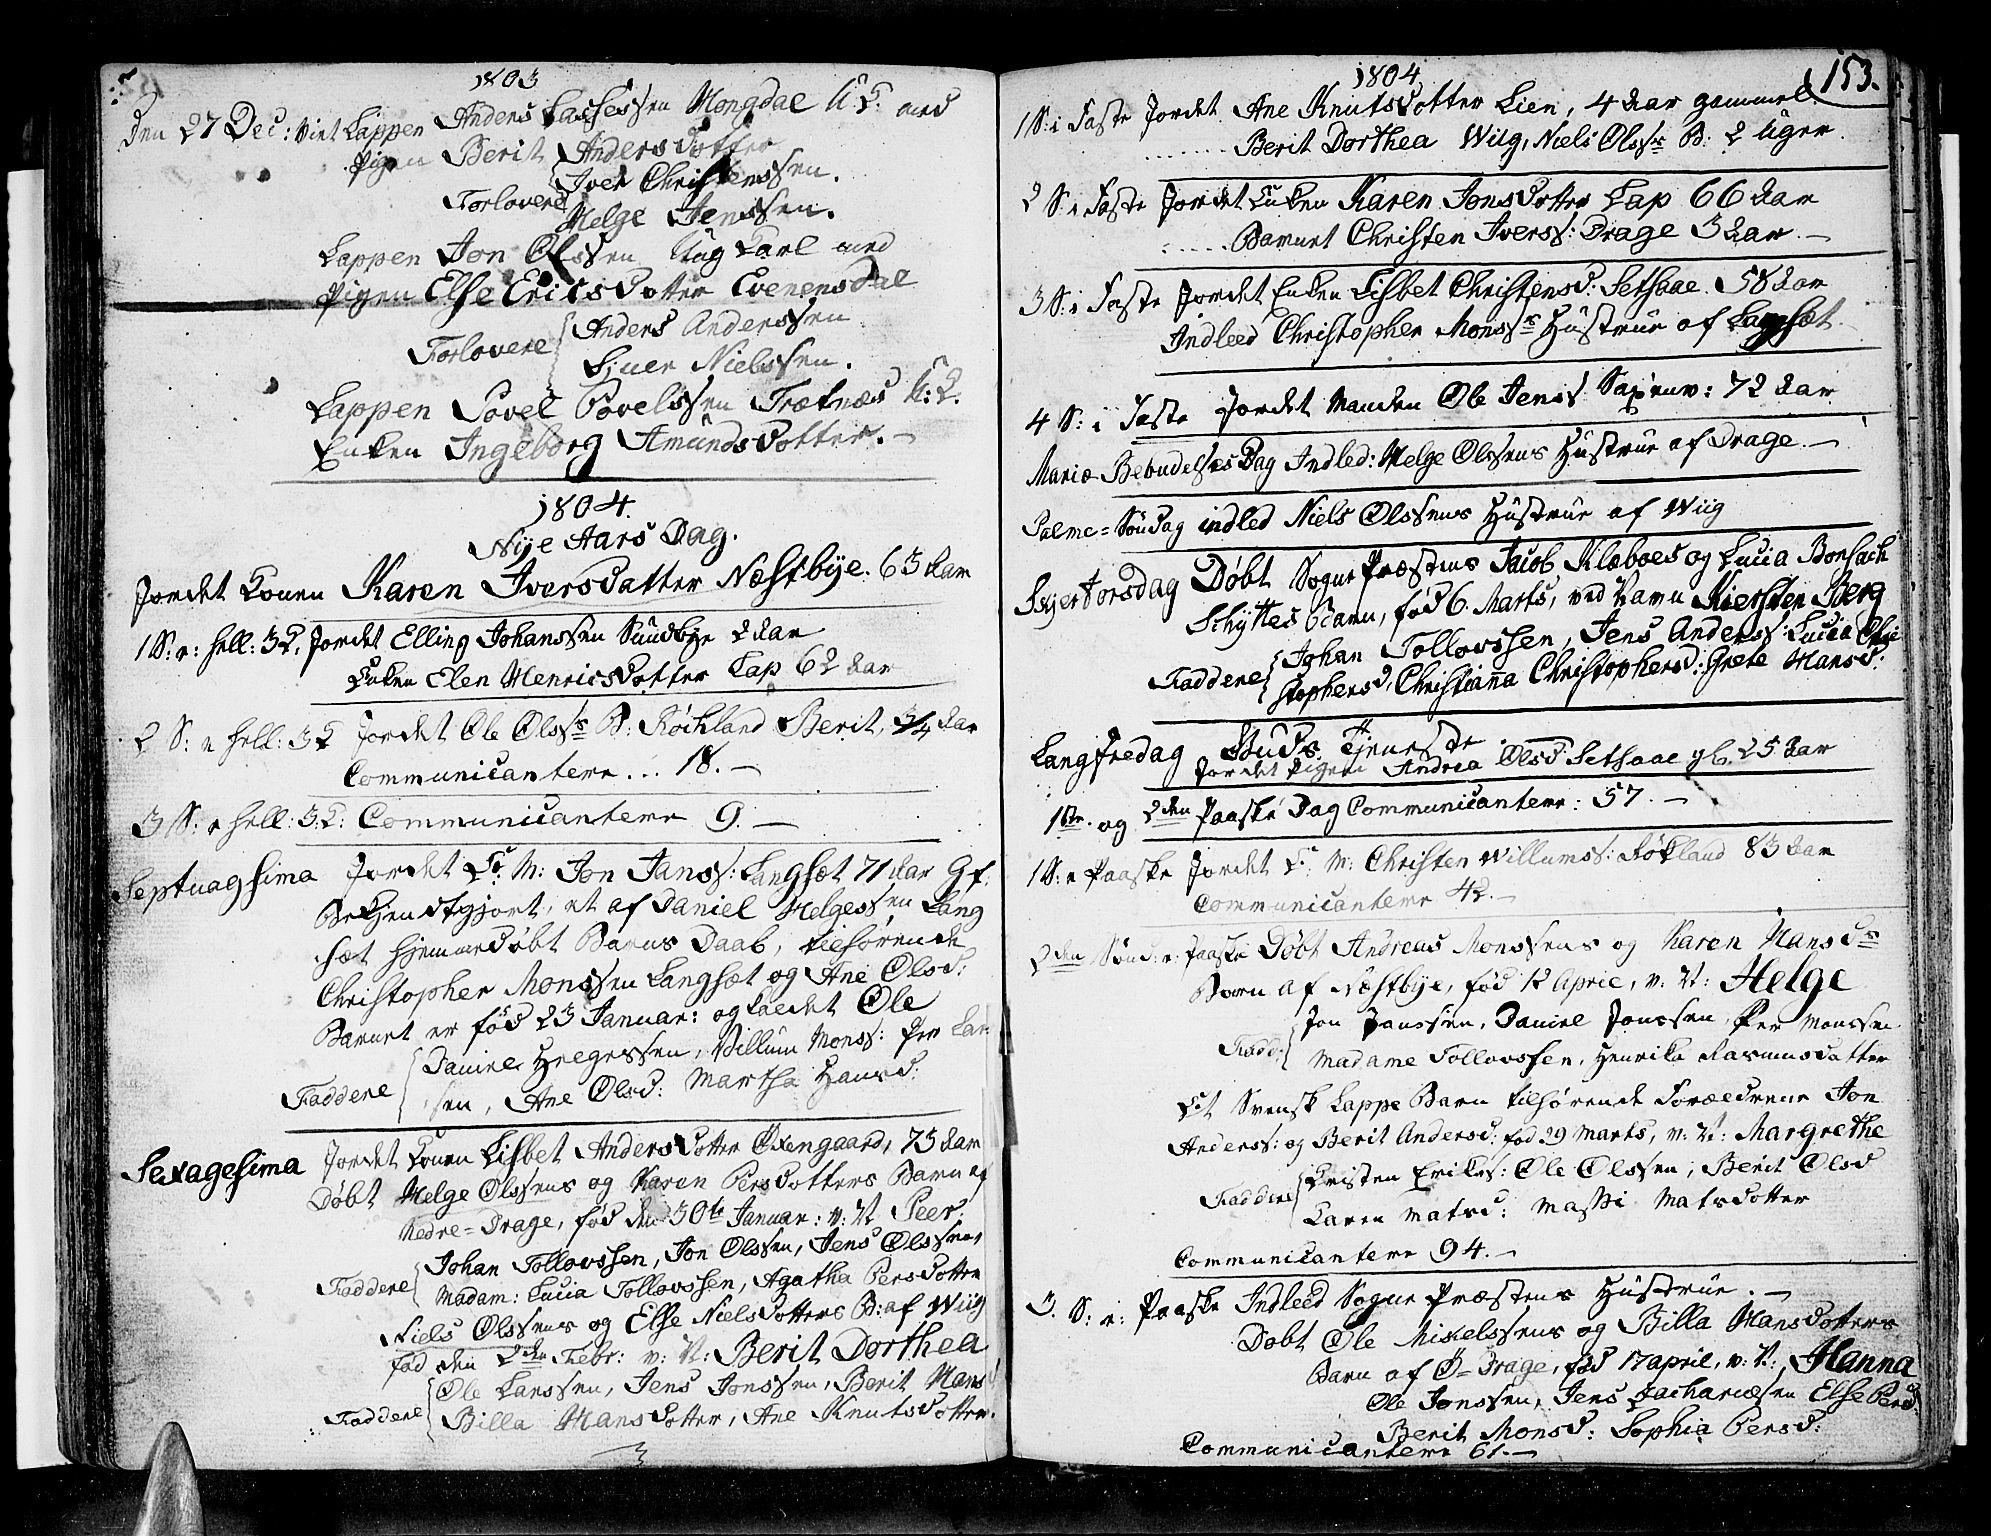 1803
Den 27 Dec: Viet Lappen Anders Lassessen Mongdal U: K: med
Pigen Berit Andersdotter
Forlovere Iver Christenssen.
Helge Jenssen.
Lappen Jon Olssen Ung Karl med
Pigen Else Ericsdotter Evenensdal
Forlovere Anders Anderssen
Siver Nielssen.
Lappen Povel Povelssen Trætnæs U: K.
Enken Ingeborg Amundsdotter. -
1804.
Nye Aars Dag.
Jordet Konen Karen Iversdatter Næstbye. 63 Aar
1 S: e: hell: 3 K. Jordet Elling Johanssen Sundbye 2 Aar
Enken Elen Henricsdotter Lap 62 Aar
2 S: e hell: 3 K Jordet Ole Olss: B: Röchland Berit, 3/4 Aar
Communicantere ... 18. -
3 S: e hell: 3: K: Communicantere 9. -
Septuagsima Jordet M: Jon Jans: Langsæt 71 Aar Gl.
Bekjendtgjort, at af Daniel Helgessen Lang
sæt hjemmedøbt Barns Daab, tilhørende
Christopher Monssen Langsæt og Ane Olsd:
Barnet er fød 23 Januar: og kaldet Ole
Faddere Daniel Helgessen, Villum Monss: Per Lar
sen, Ane Olsd: Martha Hansd:
Sexagesima Jordet Konen Lisbet Andersdotter Oxengaard, 73 Aar
Døbt Helge Olssens og Karen Persdotters Barn af
Nedre=Drage, fød den 30te Januar: v: N: Peer.
Faddere Johan Tollovssen, Jon Olssen, Jens Olssen,
Madam: Lucia Tollovssen, Agatha Persdotter
Niels Olssens og Else Nielsdotters B: af Wiig
fød den 2den Febr: v: N: Berit Dorthea
Faddere Ole Larssen, Jens Jonssen, Berit Hans
Billa Hansdotter, Ane Knutsdotter.
1804. 153.
1 S: i Faste Jordet Ane Knutsdotter Lien, 4 Aar gammel.
...... Berit Dorthea Wiig, Niels Olss: B: 2 Uger.
2 S: i Faste Jordet Enken Karen Jonsdotter Lap 66 Aar
...... Barnet Christen Iverss: Drage 3 Aar. -
3 S: i Faste Jordet Enken Lisbet Christensd: Setsaae. 58 Aar
Indleed Christopher Monss: Hustrue af Langset.
4 S: i Faste Jordet Manden Ole Jens: Saxenv: 72 Aar
Mariæ Bebudelses Dag Indled: Helge Olssens Hustrue af Drage. -
Palme=Søndag indled Niels Olssens Hustrue af Wiig
Skjertorsdag Døbt Sogne Præstens Jacob Klæboes og Lucia Bonsach
Schyttes Barn, fød 6. Marts, ved Navn Kiersten Berg
Faddere Johan Tollovssen, Jens Anderss: Lucia Chri
stophersd, Christianna Christophersd: Grete Hansd:
Langfredag Guds Tjeneste
Jordet Pigen Andrea Olsd Setsaae gl. 25 Aar
1ste og 2den Paaske Dag Communicantere: 57. -
1 S: e Paaske Jordet M: Christen Willumss: Røkland 83 Aar
Communicantere 42. -
2den Sønd: e: Paaske Døbt Andreas Monssens og Karen Hansds
Barn af Næstbye, fød 12 April, v: N: Helge
Fadd: Jon Janssen, Daniel Jonssen, Per Monssen
Madame Tollovssen, Henrika Rasmusdatter
Et Svensk Lappe Barn tilhørende Forældrene Jon
Anderss: og Berit Andersd: fød 29 Marts, v: N: Margrethe
Faddere Kristen Eriks: Ole Olssen, Berit Olsd
Karen Matsd: Massi Matsdotter
Communicantere 94. -
3. S: e: Paaske Indleed Sogne Præstens Hustrue. -
Døbt Ole Mikelssens og Billa Hansdotters
Barn af Ö=Drage, fød 17 april, v: N: Hanna
Ole Jonssen, Jens Zachariæsen Else Persd:
Berit Monsd: Sophia Persd:
Communicantere 61. -